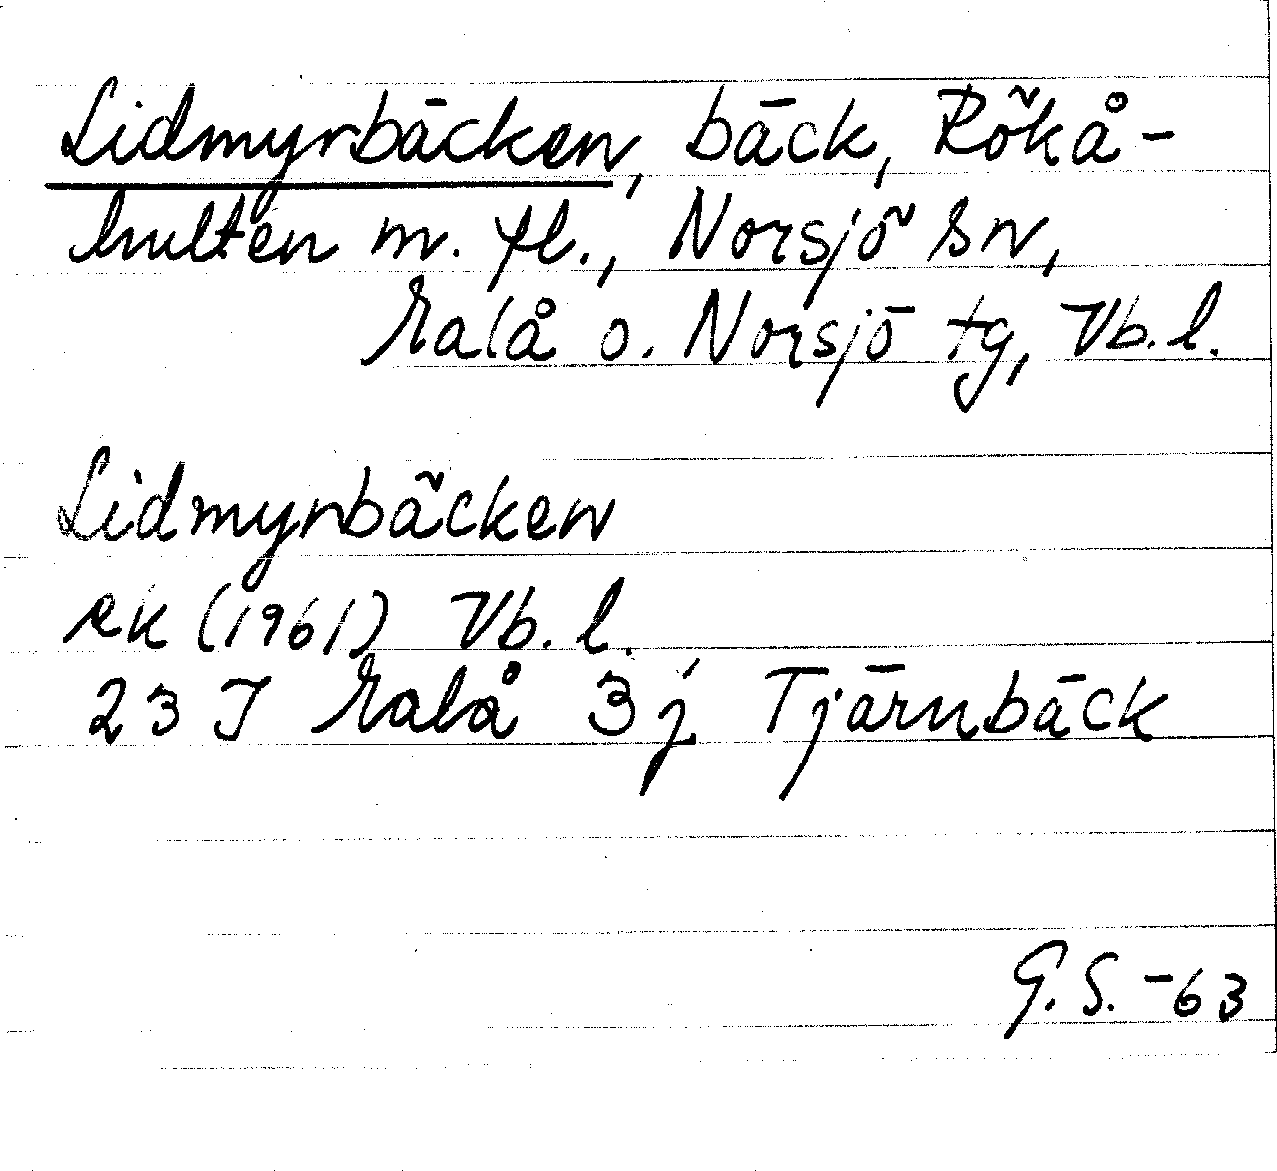 Lidmyrbäcken, bäck, Rökå-
hulten m. fl., Norsjö sn,
Malå o. Norsjö tg, Vb. l.
Lidmyrbäcken
RK (1961) Vb. l.
23 I Malå 3j Tjärnbäck
G.S. -63